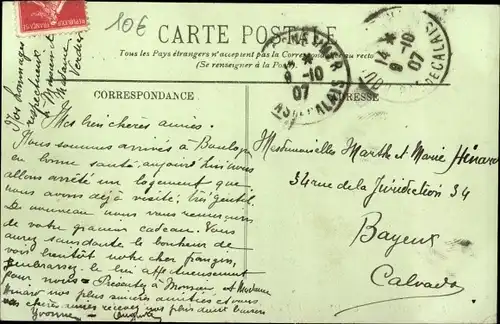 10€
CARTE POSTALE
Tous les Pays étrangers n'acceptent pas la Correspondance au recto
(Se renseigner à la Poste)
9-10
07
PAS-DE-CALAIS
14
9-10
07
PAS DE CALAIS
CORRESPONDANCE
ADRESSE
Nos hommages
respectueux
à Monsieur et
Madame
Verdier
Mes très chères amies.
Nous sommes arrivés à Boulogne
en bonne santé, aujourd'hui nous
allons arrêté un logement que
nous avons déjà visité, très gentil.
De nouveau nous vous remercions
de votre gracieux cadeau. Vous
aurez sans doute le bonheur de
voir bientôt notre cher
embrassez le bien affectueusement
pour nous. Présentez à Monsieur et Madame
Hinard nos plus sincères amitiés et vous
chères amies recevez nos plus doux baisers
Yvonne
Mesdemoiselles Marthe et Marie Hinard
34 rue de la Juridiction 34
Bayeux
Calvados